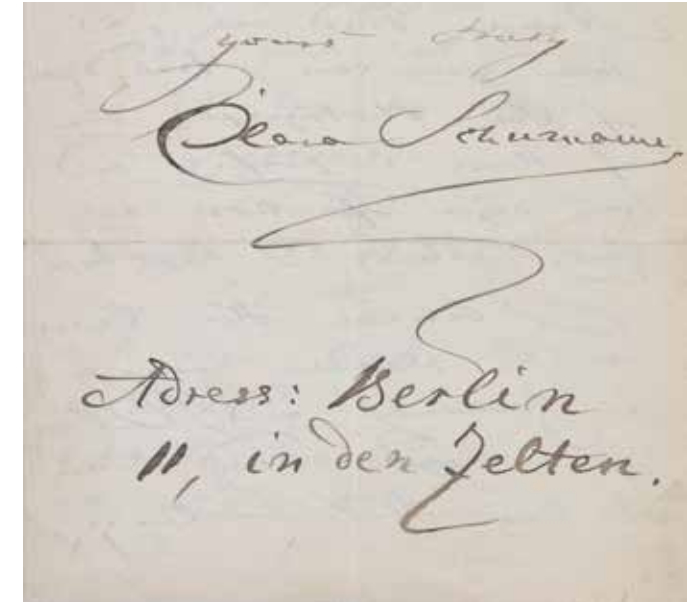 yours truly
Clara Schumann
Adress: Berlin
11, in den Zelten.